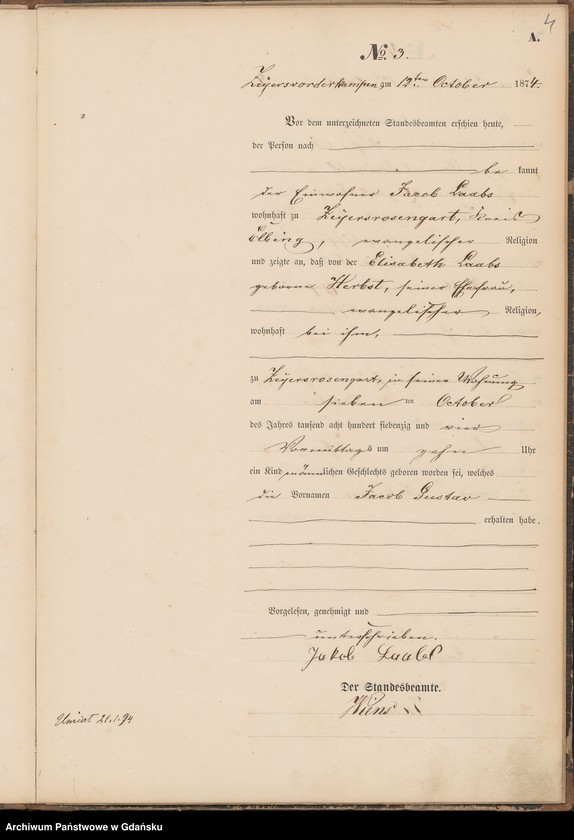 4
A.
No. 3.
Zeyersvorderkampen am 12ten October 1874.
Vor dem unterzeichneten Standesbeamten erschien heute,
der Person nach
bekannt
der Einwohner Jacob Laabs
wohnhaft zu Zeyersrosengart, Kreis
Elbing, evangelischer Religion
und zeigte an, daß von der Elisabeth Laabs
geborne Herbst, seiner Ehefrau,
evangelischer Religion,
wohnhaft bei ihm,
zu Zeyersrosengart, in seiner Wohnung
am sieben ten October
des Jahres tausend acht hundert siebenzig und vier
Vormittags um zehn Uhr
ein Kind männlichen Geschlechts geboren worden sei, welches
die Vornamen Jacob Gustav
erhalten habe.
Vorgelesen, genehmigt und
unterschrieben.
Jakob Laabs
Der Standesbeamte.
21.1.94
Archiwum Państwowe w Gdańsku